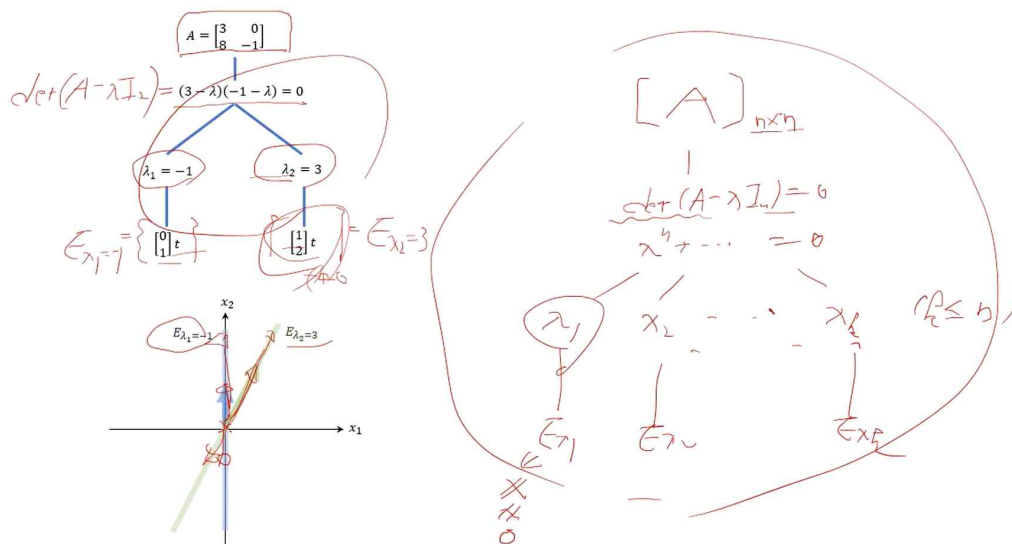 A = [3 0
8 −1]
det(A−λI₂) = (3 − λ)(−1 − λ) = 0
λ₁ = −1
λ₂ = 3
E_λ₁=−1 = {[0 1] t}
[1 2] t = E_λ₂=3
t≠0
x₂
E_λ₁=−1
E_λ₂=3
x₁
[A]n×n
det(A−λIₙ) = 0
λⁿ + ⋯ = 0
λ₁ λ₂ - - - λₖ (k ≤ n)
E_λ₁ E_λ₂ E_λₖ